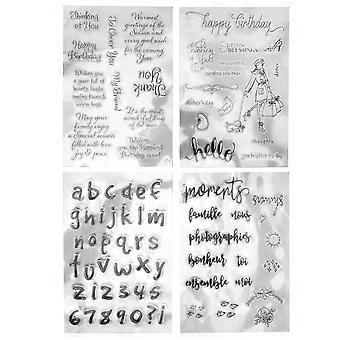 Thinking
of You
Happy
Birthday
I'm Over
for You
Warmest
greetings of the
Season and
every good wish
for the coming
Year
Wishing you
a year full of
My Friend
Thank
You
May your
family enjoy
a Special season
filled with love
joy & peace
It's the most
beautiful time
of the year
Wishing
you the Happiest
Birthday ever!
happy birthday
sending you hugs
Mother's day
thoughts
hello
you brighten my day
a b c d e f
g h i j k l m
n o p q r s
t u v w x y z
1 2 3 4 5
6 7 8 9 0 ? !
moments
famille nous
photographies
bonheur toi
ensemble moi